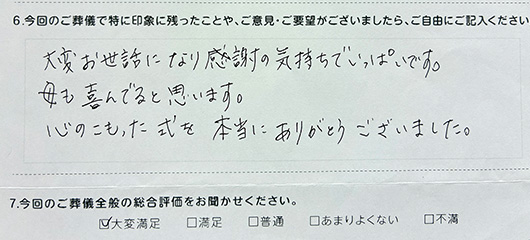 6.今回のご葬儀で特に印象に残ったことや、ご意見・ご要望がございましたら、ご自由にご記入ください
大変お世話になり感謝の気持ちでいっぱいです。
母も喜んでると思います。
心のこもった式を本当にありがとうございました。
7.今回のご葬儀全般の総合評価をお聞かせください。
☑大変満足 □満足 □普通 □あまりよくない □不満